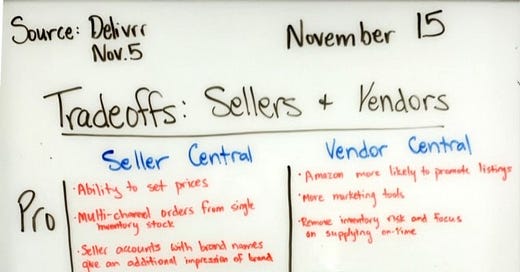 Source: Deliverr
Nov. 5
November 15
Tradeoffs: Sellers + Vendors
Seller Central
Vendor Central
Pro
· Ability to set prices
· Multi-channel orders from single
inventory stock
· Seller accounts with brand names
give an additional impression of brand
· Amazon more likely to promote listings
· More marketing tools
· Remove inventory risk and focus
on supplying on-time